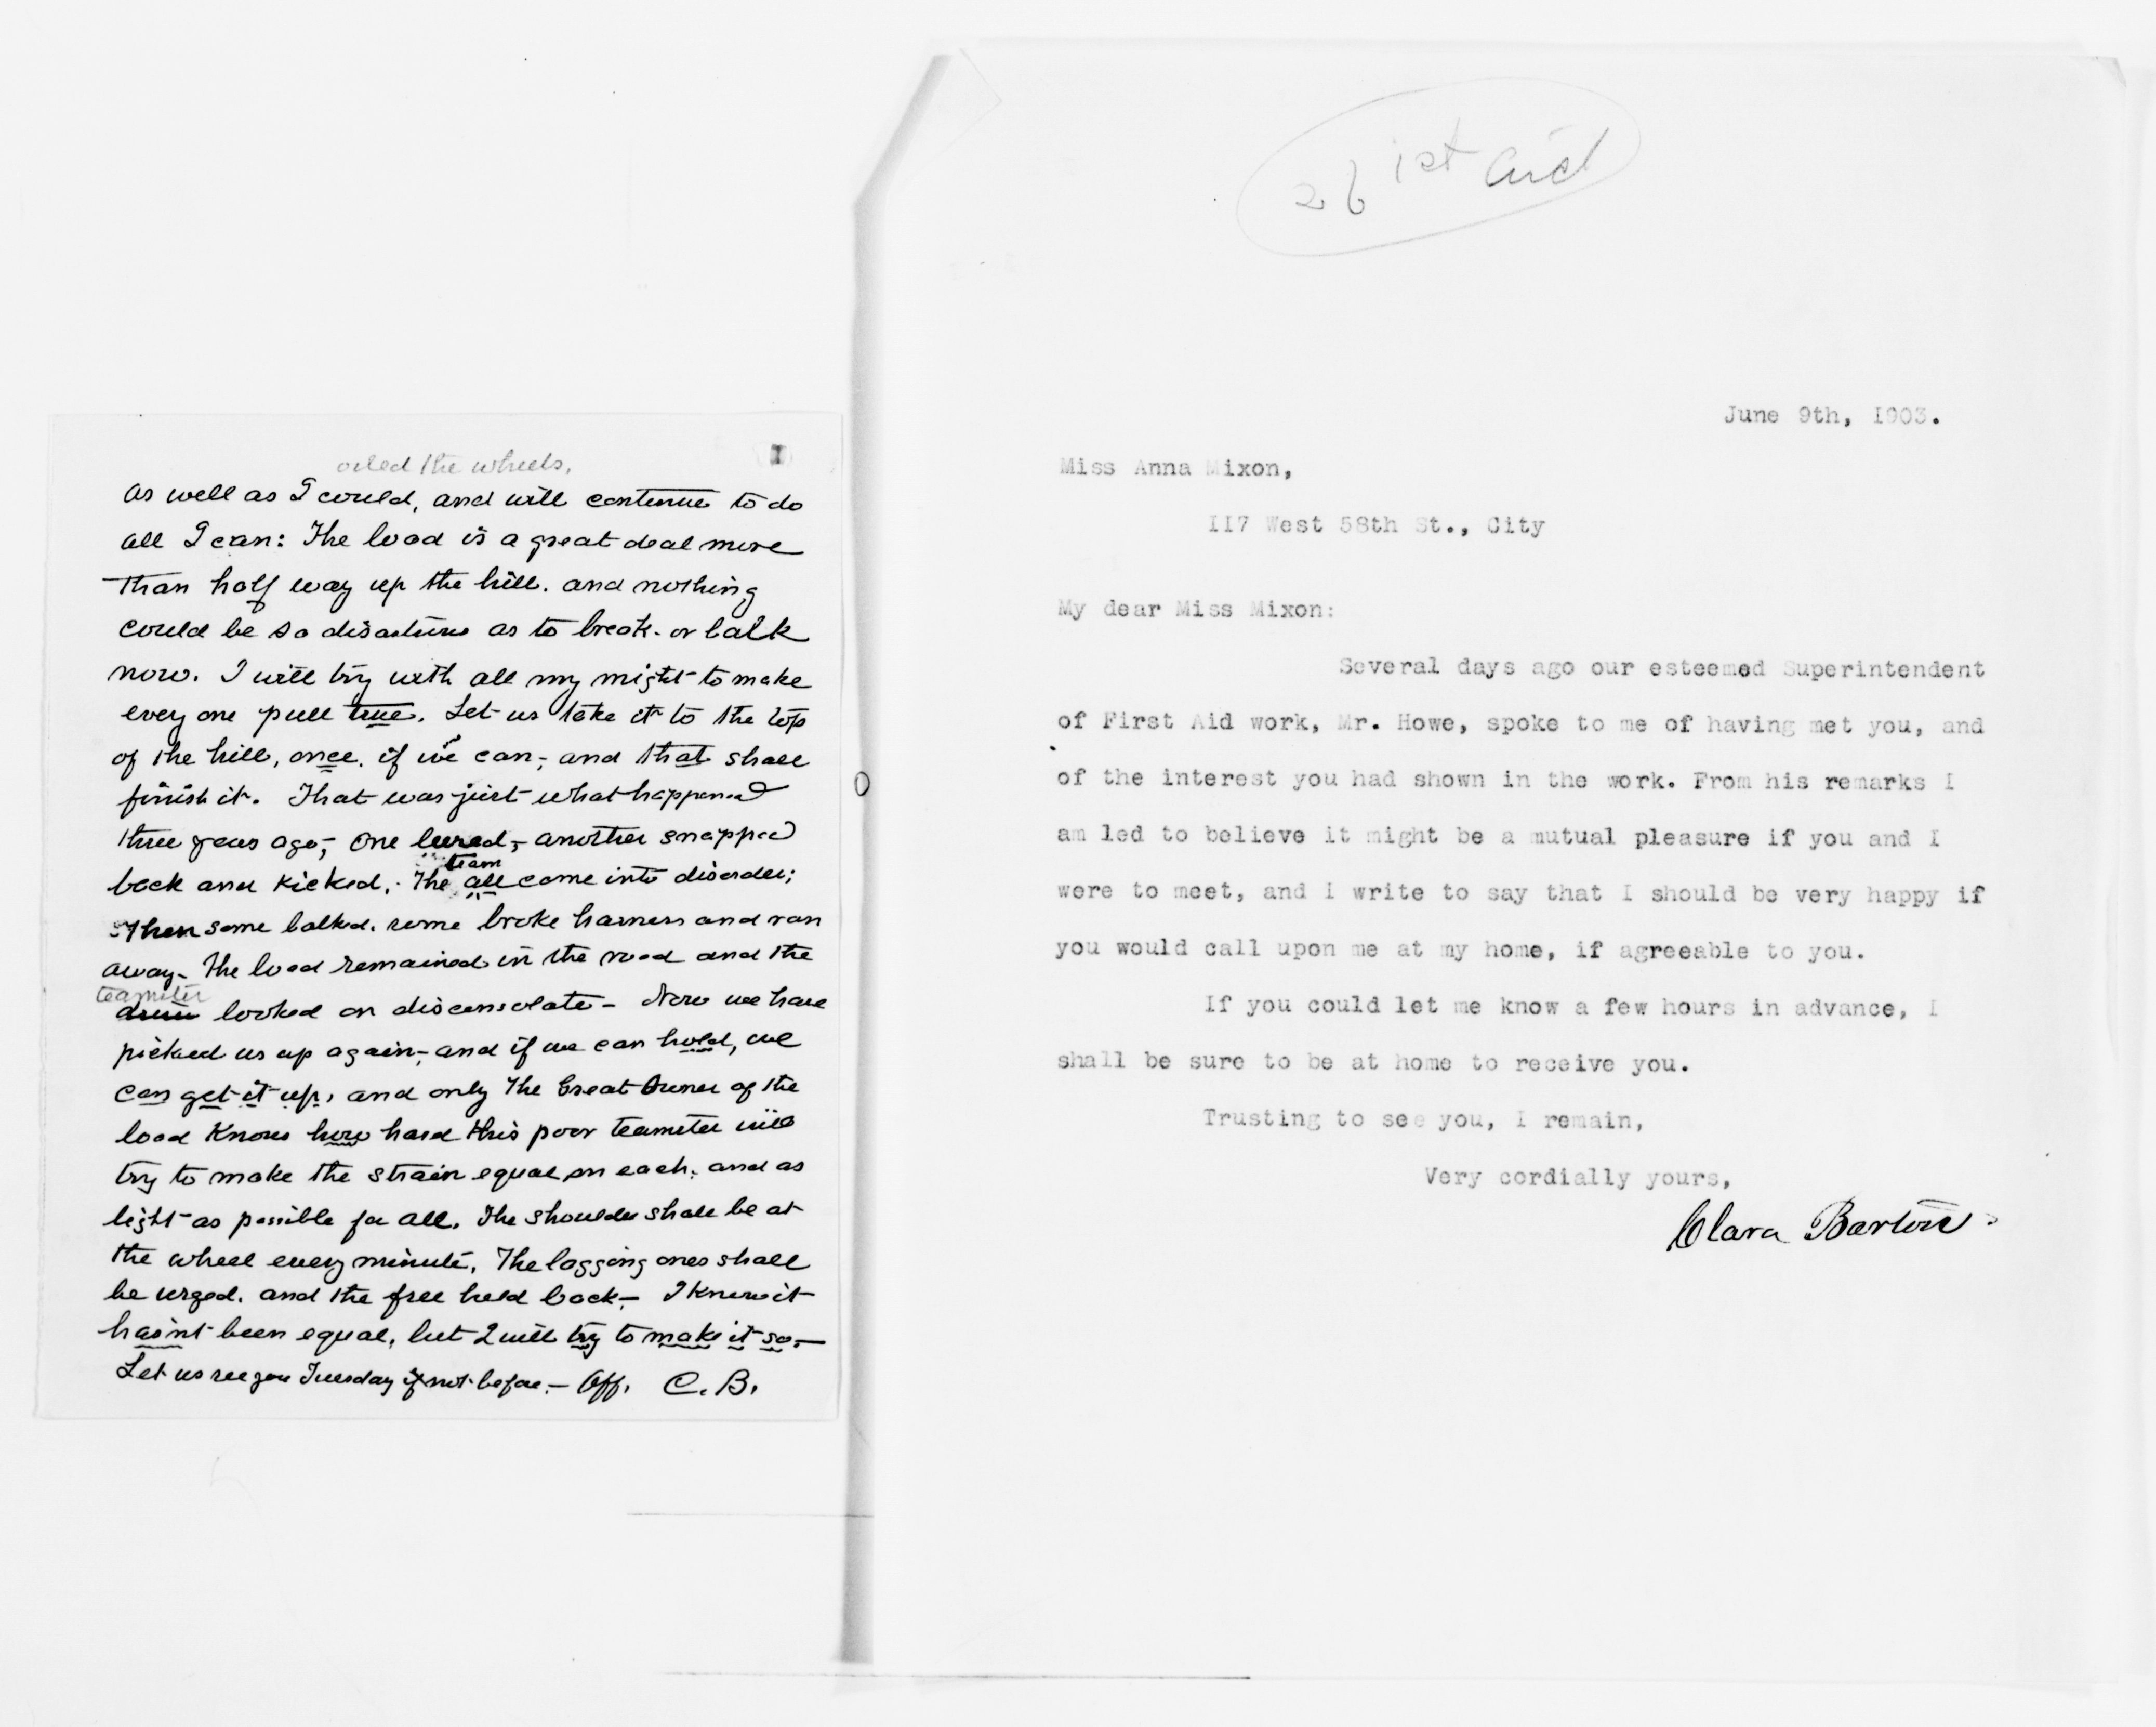 oiled the wheels,
as well as I could, and will continue to do
all I can: The load is a great deal more
than half way up the hill. and nothing
could be so disastrous as to break. or balk
now. I will try with all my might to make
every one pull true. Let us take it to the top
of the hill, once, if we can, and that shall
finish it. That was just what happened
three years ago; one , another snapped
back and kicked, The team
all came into disorder;
Then some balked. some broke harness and ran
away - The load remained in the road and the
teamster
looked on disconsolate - Now we have
picked us up again, and if we can hold, we
can get it up, and only The Great Owner of the
load Knows how hard this poor teamster will
try to make the strain equal on each. and as
light as possible for all. The shoulder shall be at
the wheel every minute, The lagging ones shall
be urged. and the free held back - I know it
hasn't been equal, but I will try to make it so. -
Let us see you Tuesday if not before. - Aff. C. B.
26 1st aid
June 9th, I903.
Miss Anna Mixon,
II7 West 58th St., City
My dear Miss Mixon:
Several days ago our esteemed Superintendent
of First Aid work, Mr. Howe, spoke to me of having met you, and
of the interest you had shown in the work. From his remarks I
am led to believe it might be a mutual pleasure if you and I
were to meet, and I write to say that I should be very happy if
you would call upon me at my home, if agreeable to you.
If you could let me know a few hours in advance, I
shall be sure to be at home to receive you.
Trusting to see you, I remain,
Very cordially yours,
Clara Barton